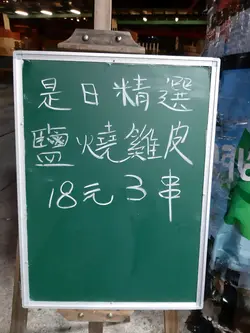 是日精選
鹽燒雞皮
18元3串